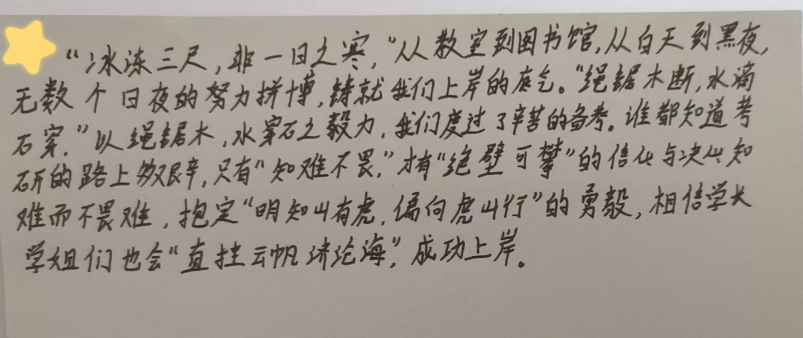 “冰冻三尺，非一日之寒，”从教室到图书馆，从白天到黑夜，
无数个日夜的努力拼博，铸就我们上岸的底气。“绳锯木断，水滴
石穿，”以绳锯木，水穿石之毅力，我们度过了辛苦的备考。谁都知道考
研的路上多艰辛，只有“知难不畏，”才有“绝壁可攀”的信心与决心知
难而不畏难，抱定“明知山有虎，偏向虎山行”的勇毅，相信学长
学姐们也会“直挂云帆济沧海”，成功上岸。